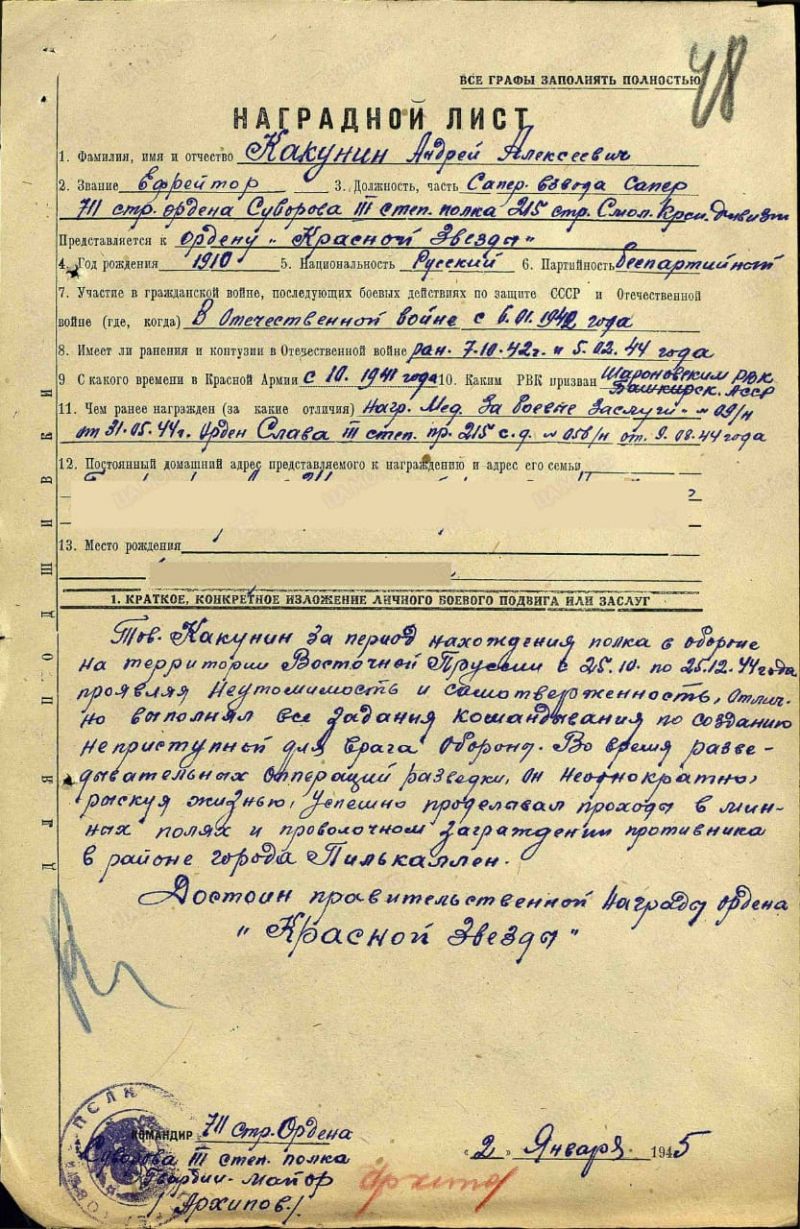 ВСЕ ГРАФЫ ЗАПОЛНЯТЬ ПОЛНОСТЬЮ 48
НАГРАДНОЙ ЛИСТ
1. Фамилия, имя и отчество Какунин Андрей Алексеевич
2. Звание Ефрейтор 3. Должность, часть Сапер. взвода Сапер
711 стр. ордена Суворова III степ. полка 215 стр. Смол. Крсн. дивизи
Представляется к ордену „Красной Звезды"
4. Год рождения 1910 5. Национальность Русский 6. Партийность беспартийной
7. Участие в гражданской войне, последующих боевых действиях по защите СССР и Отечественной
войне (где, когда) В Отечественной войне с 6.01.1942 года
8. Имеет ли ранения и контузии в Отечественной войне ран. 7-10.42г. и 5.02.44 года
9 С какого времени в Красной Армии с 10.1941 года 10. Каким РВК призван Шароновским РВК
Башкирск. АССР
11. Чем ранее награжден (за какие отличия) Нагр. Мед. За боевые Заслуги - № 09/н
от 31.05.44г. Орден Слава III степ. пр. 215 с.д. № 058/н от. 9.08.44 года
12. Постоянный домашний адрес представляемого к награждению и адрес его семьи
13. Место рождения
1. КРАТКОЕ, КОНКРЕТНОЕ ИЗЛОЖЕНИЕ ЛИЧНОГО БОЕВОГО ПОДВИГА ИЛИ ЗАСЛУГ
Тов. Какунин за период нахождения полка в обороне
на территории Восточной Пруссии с 25.10. по 25.12.44 года
проявляя Неутомимость и самотверженность, отлич-
но выполнял все задания командывания по созданию
неприступной для врага Обороны. Во время разве-
дывательных опперации разведки, он неоднократно,
рыскуя жизнью, успешно проделавал проходы в мин-
ных полях и проволочном заграждении противника
в районе города Пилькаллен.
Достоин правительственной Награды ордена
„Красной Звезды"
ДЛЯ ПОДШИВКИ
КОМАНДИР 711 стр. Ордена
Суворова III степ. полка
Гвардии-майор
/Архипов/
«2» Января 1945